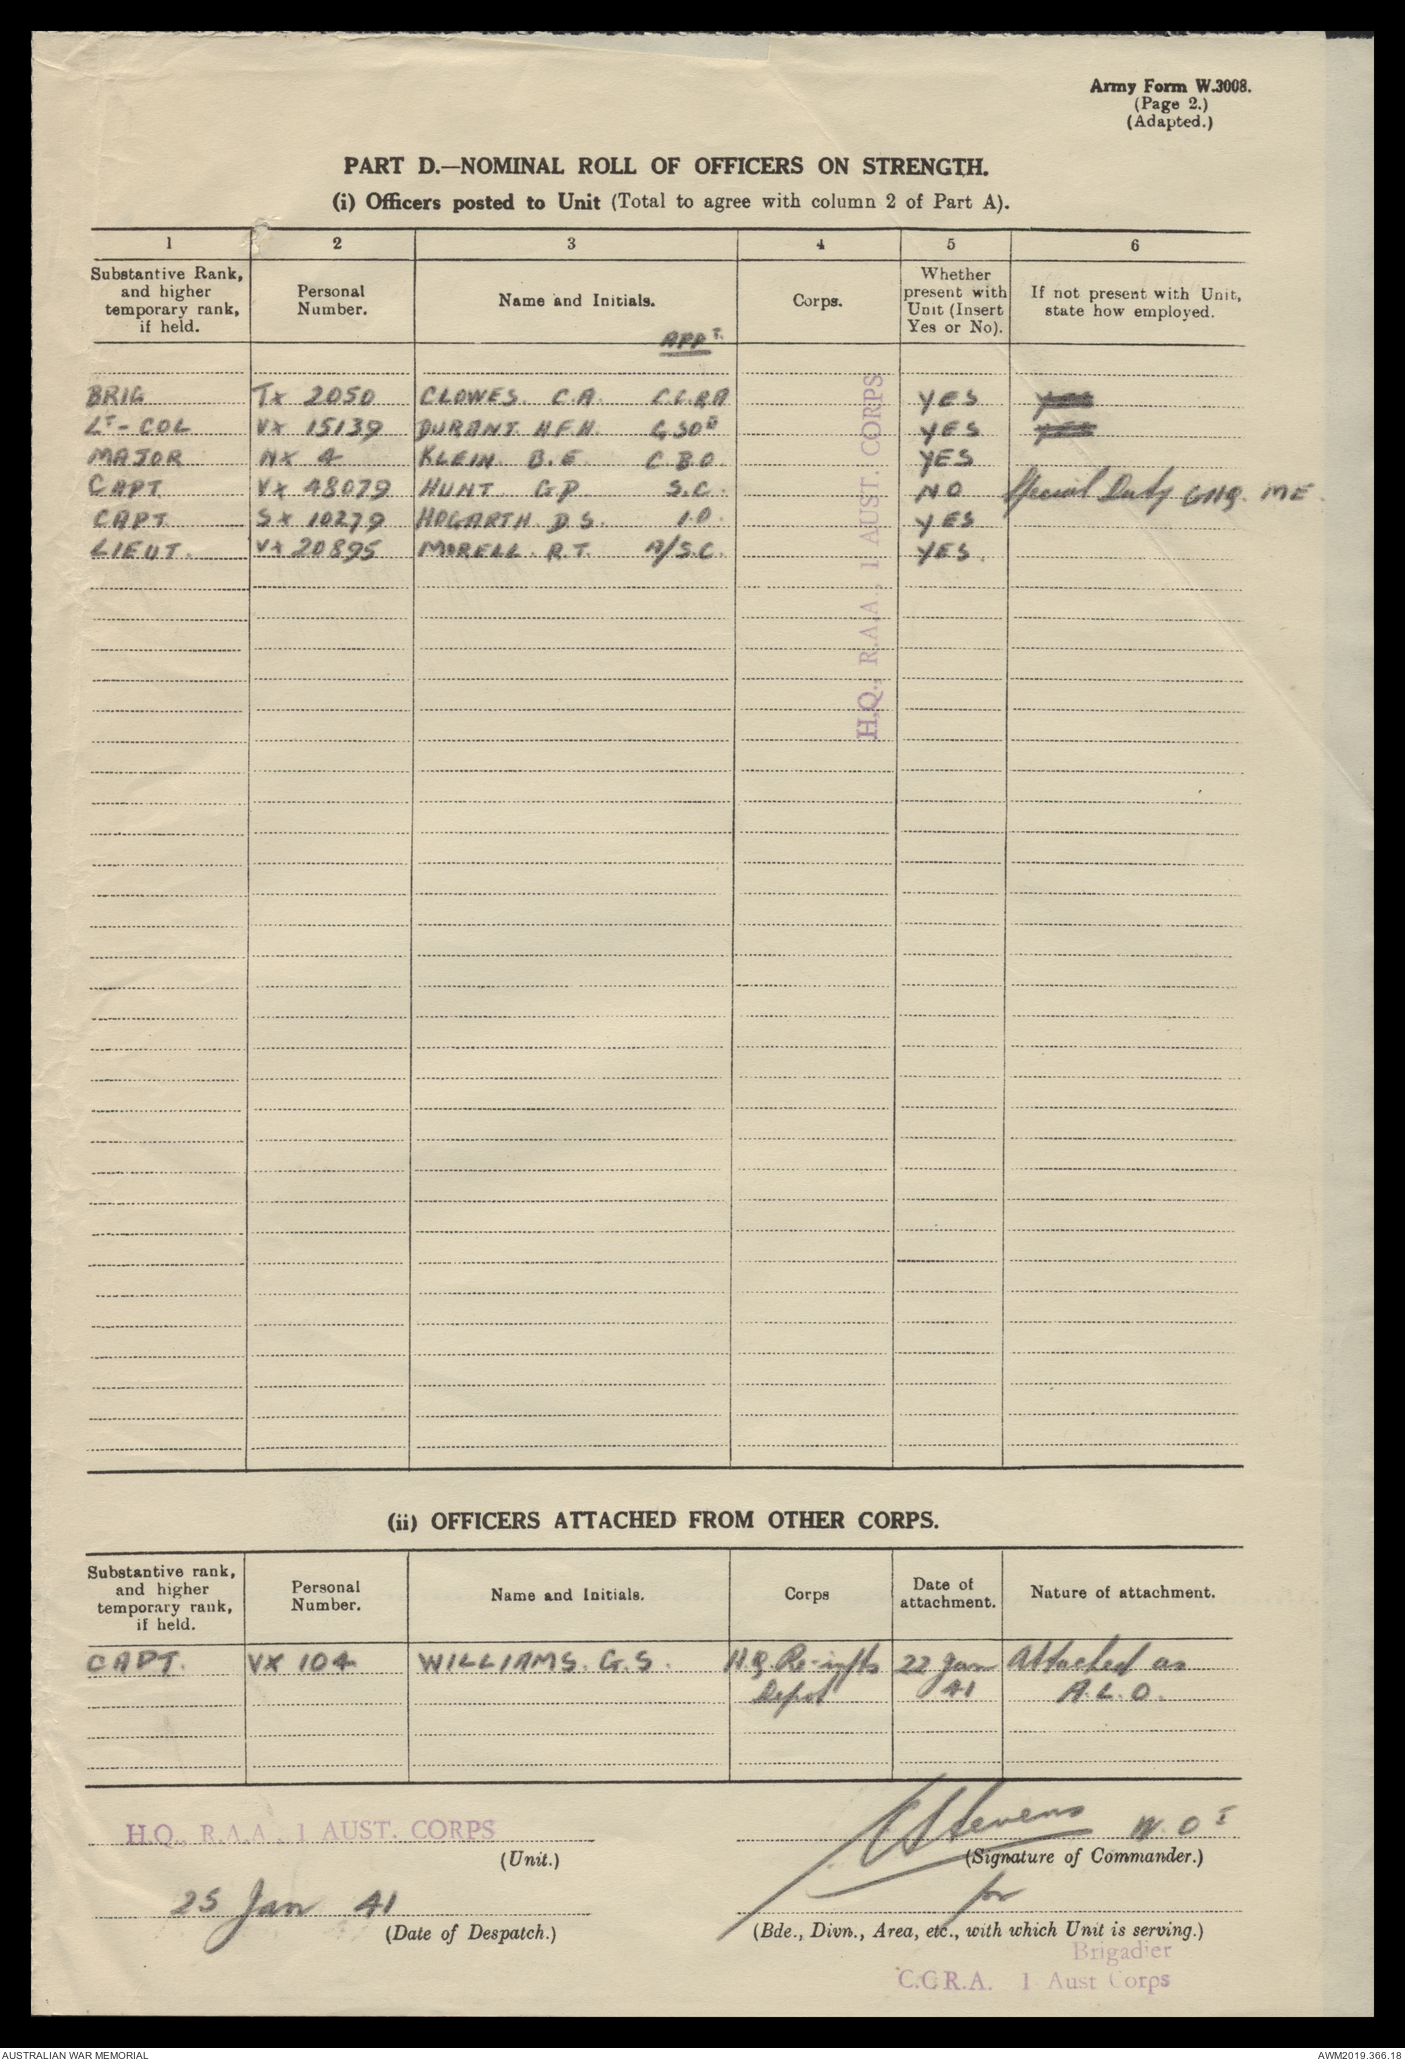 Army Form W.3008.
(Page 2.)
(Adapted.)
PART D.—NOMINAL ROLL OF OFFICERS ON STRENGTH.
(i) Officers posted to Unit (Total to agree with column 2 of Part A).
1 2 3 4 5 6
Substantive Rank, and higher temporary rank, if held.
Personal Number.
Name and Initials.
APPT.
Corps.
Whether present with Unit (Insert Yes or No).
If not present with Unit, state how employed.
BRIG TX 2050 CLOWES. C.A. C.C.R.A YES
LT-COL VX 15139 DURANT H.F.H. GSO II YES
MAJOR NX 4 KLEIN. B.E. C.B.O. YES
CAPT VX 48079 HUNT G.P. S.C. NO Special Duty GHQ. ME.
CAPT SX 10279 HOGARTH D.S. I.O. YES
LIEUT. VX 20895 MORELL. R.T. A/S.C. YES.
H.Q., R.A.A., 1 AUST. CORPS
(ii) OFFICERS ATTACHED FROM OTHER CORPS.
Substantive rank, and higher temporary rank, if held.
Personal Number.
Name and Initials.
Corps
Date of attachment.
Nature of attachment.
CAPT. VX 104 WILLIAMS. G.S. H.Q. Re-infts 22 Jan Attached as
Depot 41 A.L.O.
H.Q., R.A.A., 1 AUST. CORPS
(Unit.)
Stevens W.O I
(Signature of Commander.)
for
25 Jan 41
(Date of Despatch.)
(Bde., Divn., Area, etc., with which Unit is serving.)
Brigadier
C.C.R.A. 1 Aust Corps
AUSTRALIAN WAR MEMORIAL
AWM2019.366.18